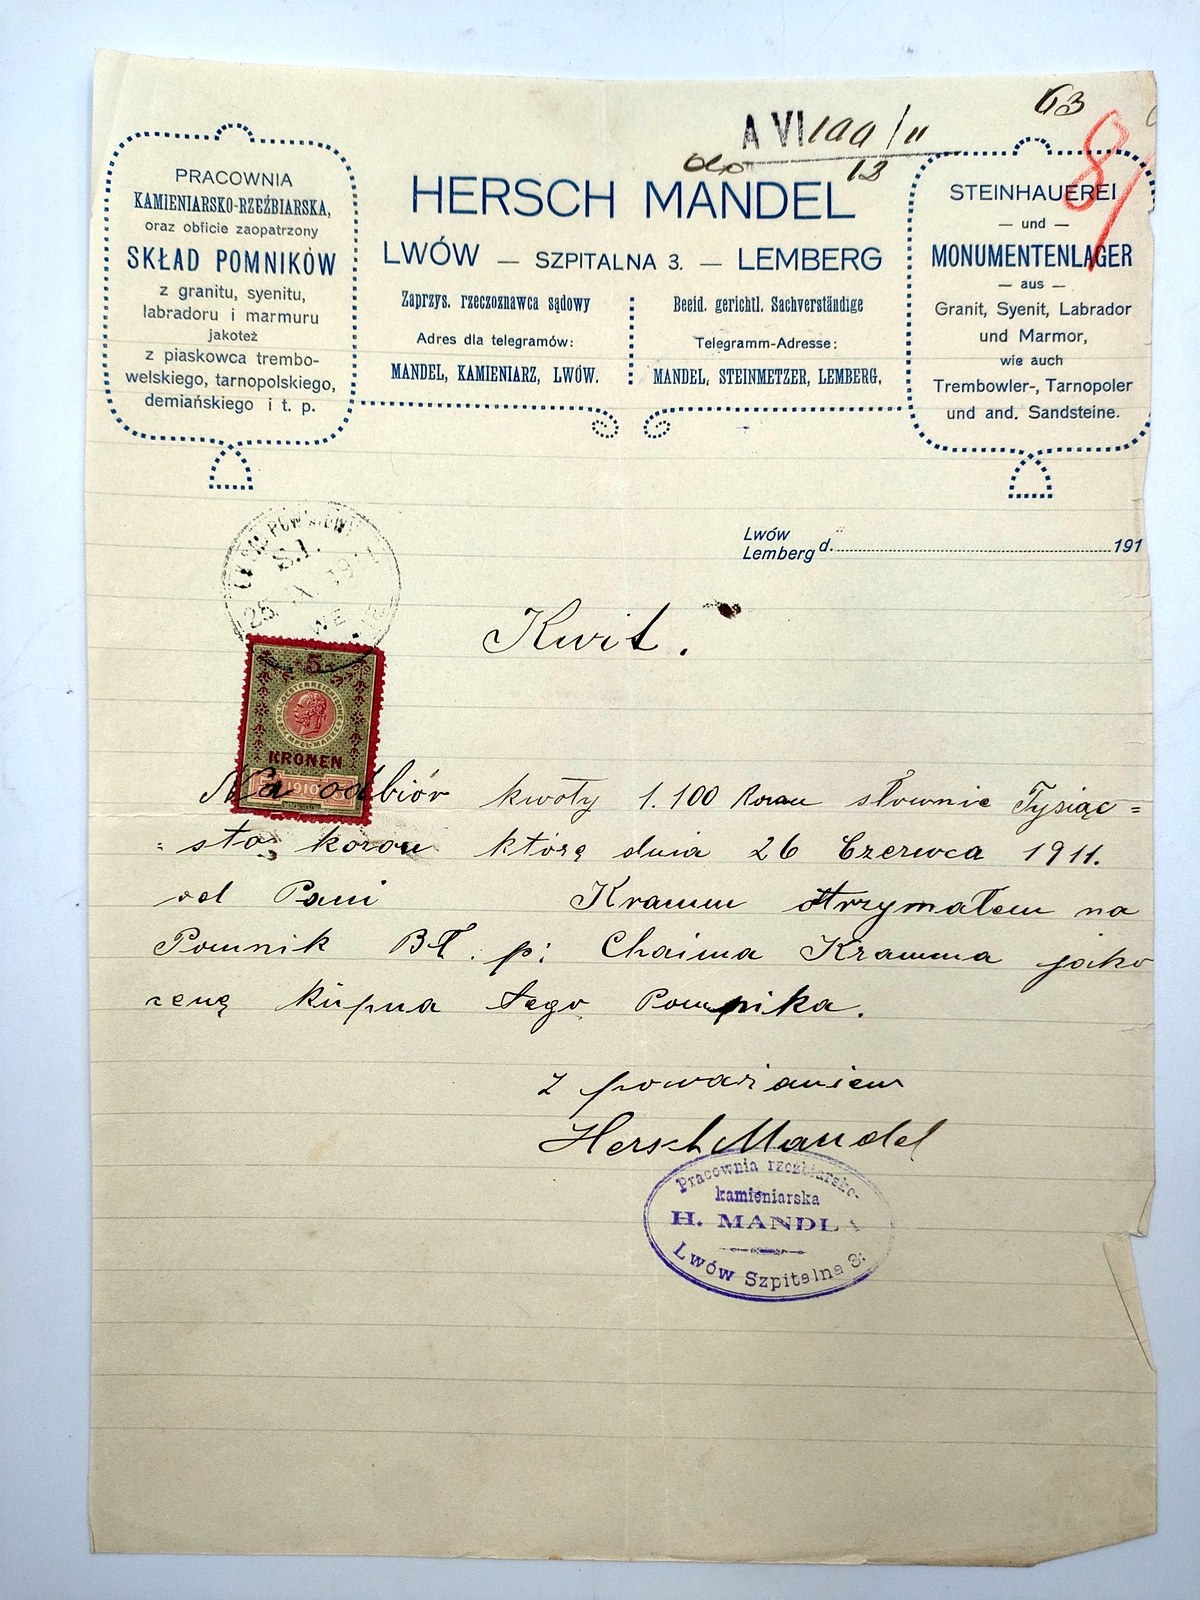 63
8/
A VI 199/11
13
PRACOWNIA
KAMIENIARSKO-RZEŹBIARSKA,
oraz obficie zaopatrzony
SKŁAD POMNIKÓW
z granitu, syenitu,
labradoru i marmuru
jakoteż
z piaskowca trembo-
welskiego, tarnopolskiego,
demiańskiego i t. p.
HERSCH MANDEL
LWÓW — SZPITALNA 3. — LEMBERG
Zaprzys. rzeczoznawca sądowy
Adres dla telegramów:
MANDEL, KAMIENIARZ, LWÓW.
Beeid. gerichtl. Sachverständige
Telegramm-Adresse:
MANDEL, STEINMETZER, LEMBERG.
STEINHAUEREI
— und —
MONUMENTENLAGER
— aus —
Granit, Syenit, Labrador
und Marmor,
wie auch
Trembowler-, Tarnopoler
und and. Sandsteine.
Lwów
Lemberg d. 191
S.I.
25. X 19
WE
Kwit.
5
OESTERREICHISCHE
STEMPEL-MARKE
KRONEN
1910
Na odbiór kwoty 1.100 koron słownie Tysiąc =
= sto koron którą dnia 26 Czerwca 1911.
od Pani Kramm otrzymałem na
Pomnik Bł. p: Chaima Kramma jako
cenę kupna tego Pomnika.
z poważaniem
Hersch Mandel
Pracownia rzeźbiarsko-
kamieniarska
H. MANDLA
Lwów Szpitalna 3.